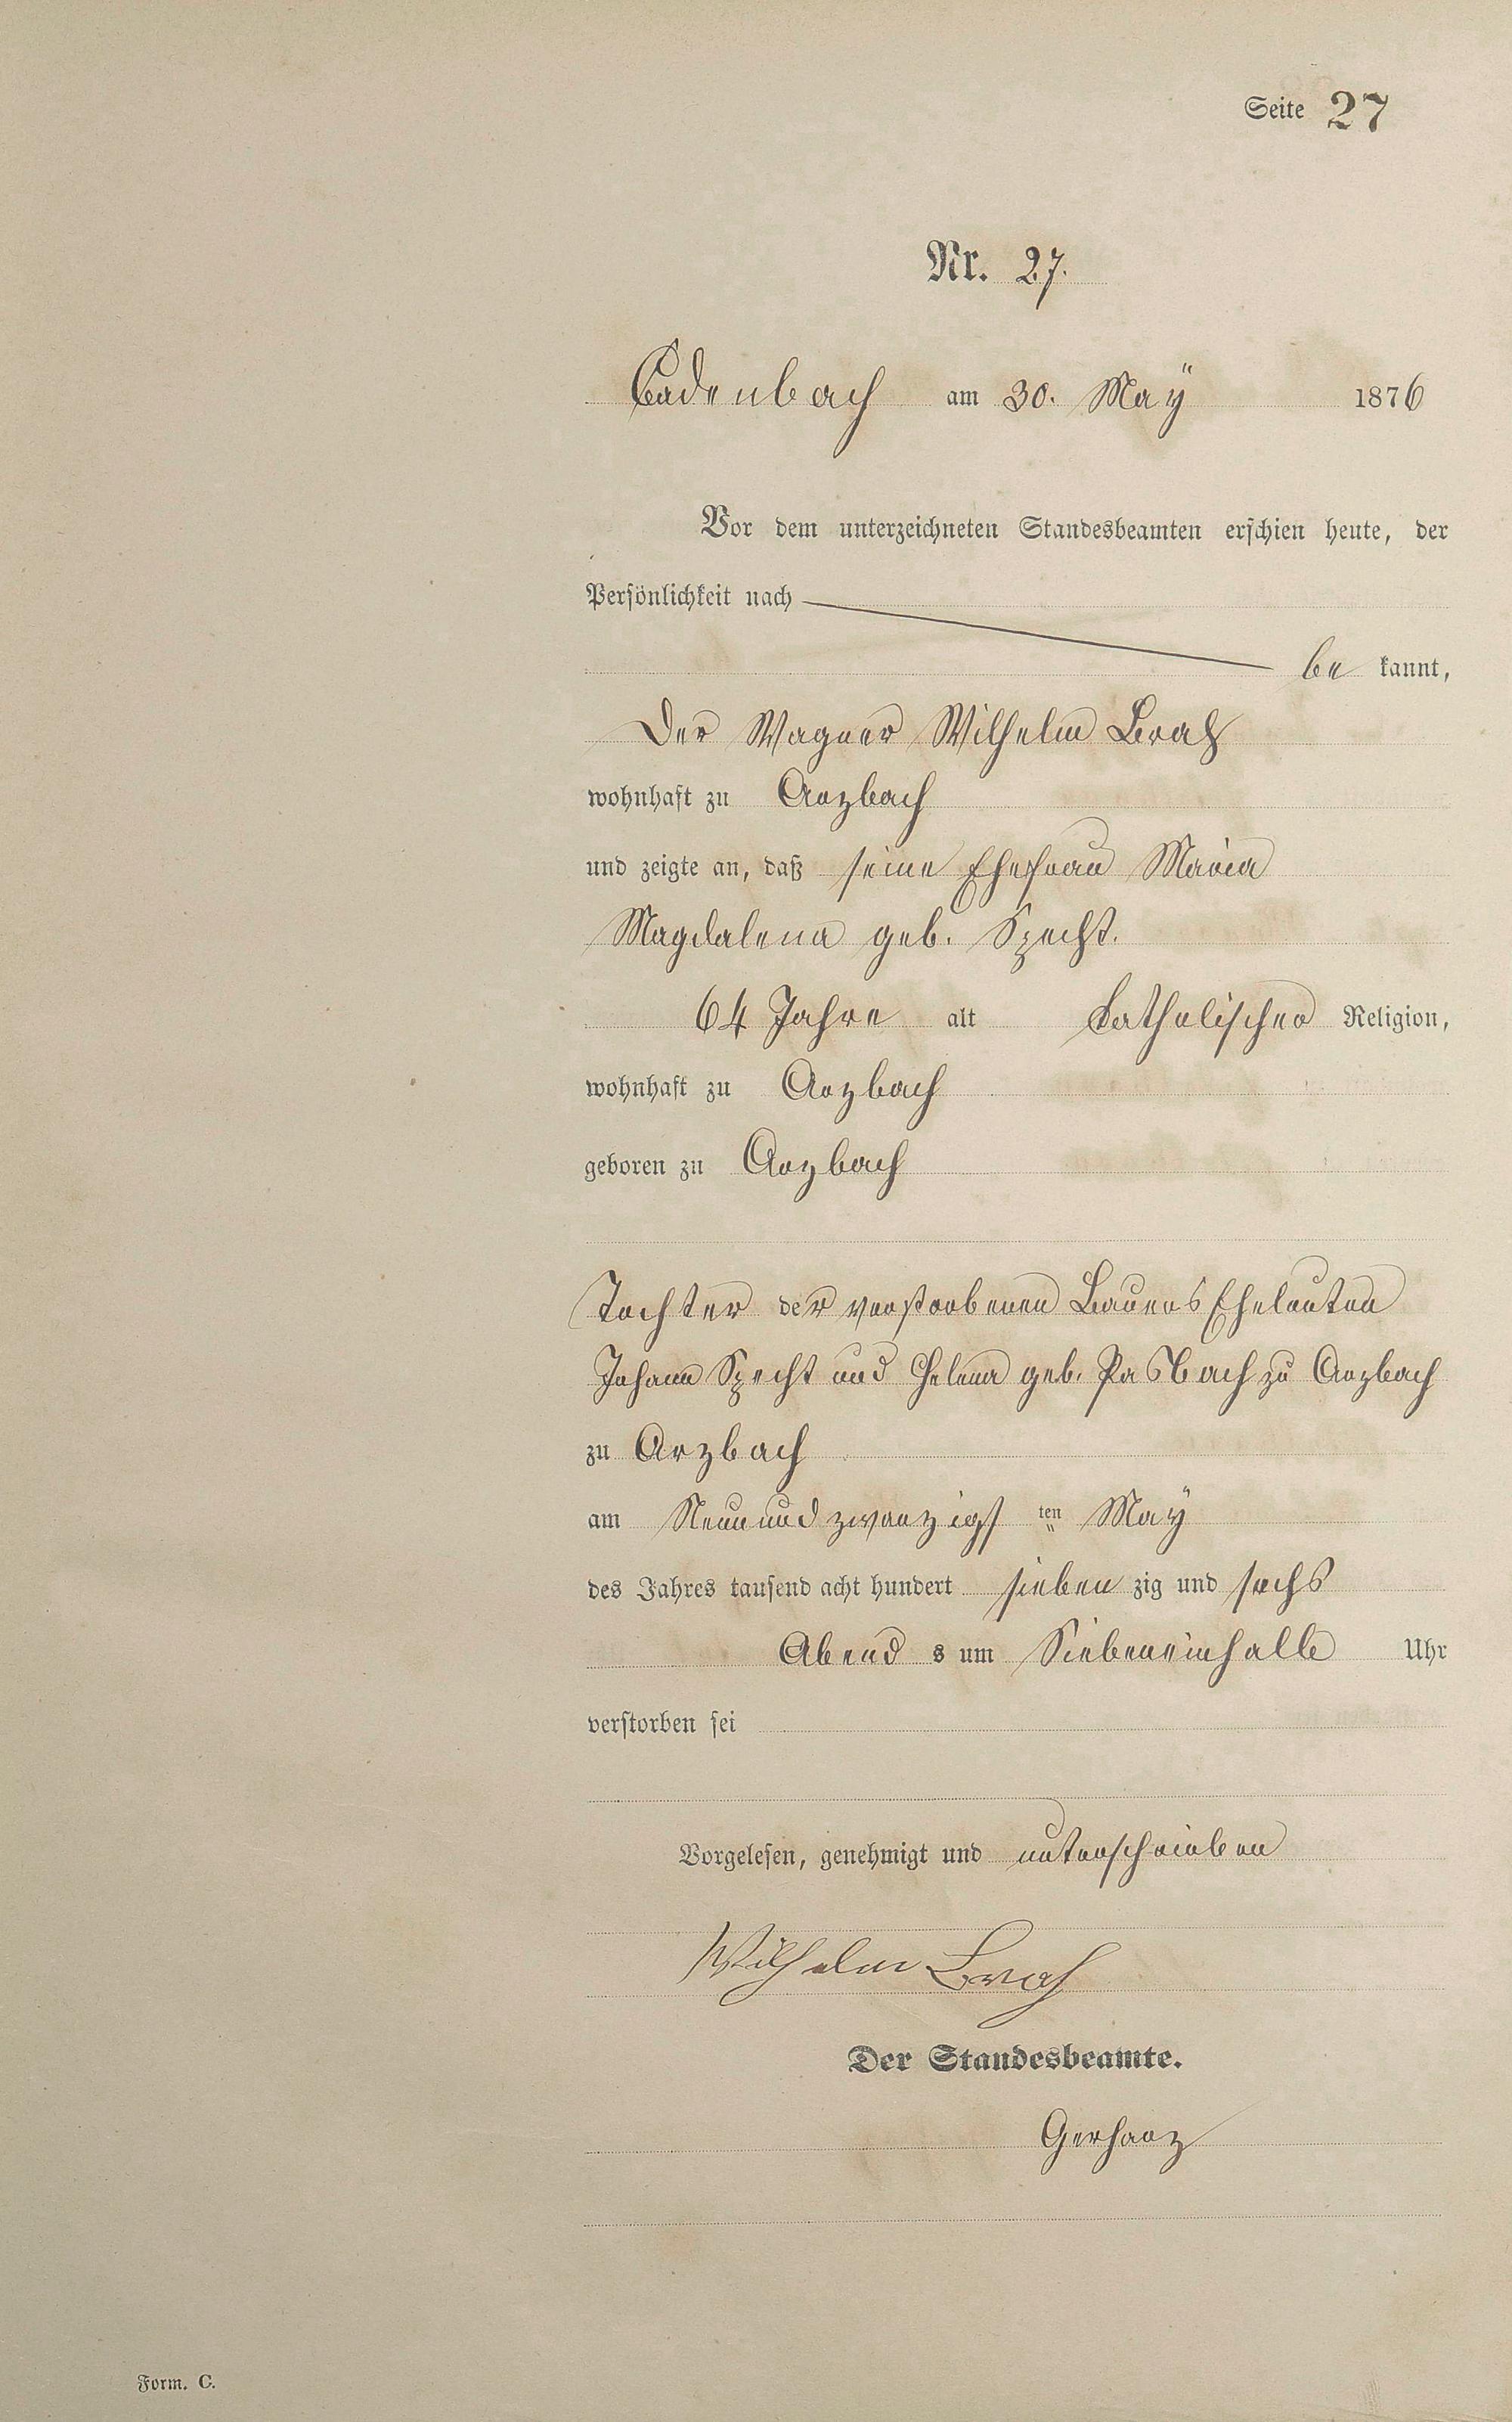 Seite 27
Nr. 27.
Cadenbach am 30. Maÿ 1876
Vor dem unterzeichneten Standesbeamten erschien heute, der
Persönlichkeit nach
be kannt,
Der Wagner Wilhelm Brah
wohnhaft zu Arzbach
und zeigte an, daß seine Ehefrau Maria
Magdalena geb. Specht.
64 Jahre alt katholischer Religion,
wohnhaft zu Arzbach
geboren zu Arzbach
Tochter der verstorbenen Bauers Eheleuten
Johann Specht und Helena geb. Pasbach zu Arzbach
zu Arzbach
am Neunundzwanzigs ten Maÿ
des Jahres tausend acht hundert sieben zig und sechs
Abend s um Siebeneinhalb Uhr
verstorben sei
Vorgelesen, genehmigt und unterschrieben
Wilhelm Brah
Der Standesbeamte.
Gerharz
Form. C.